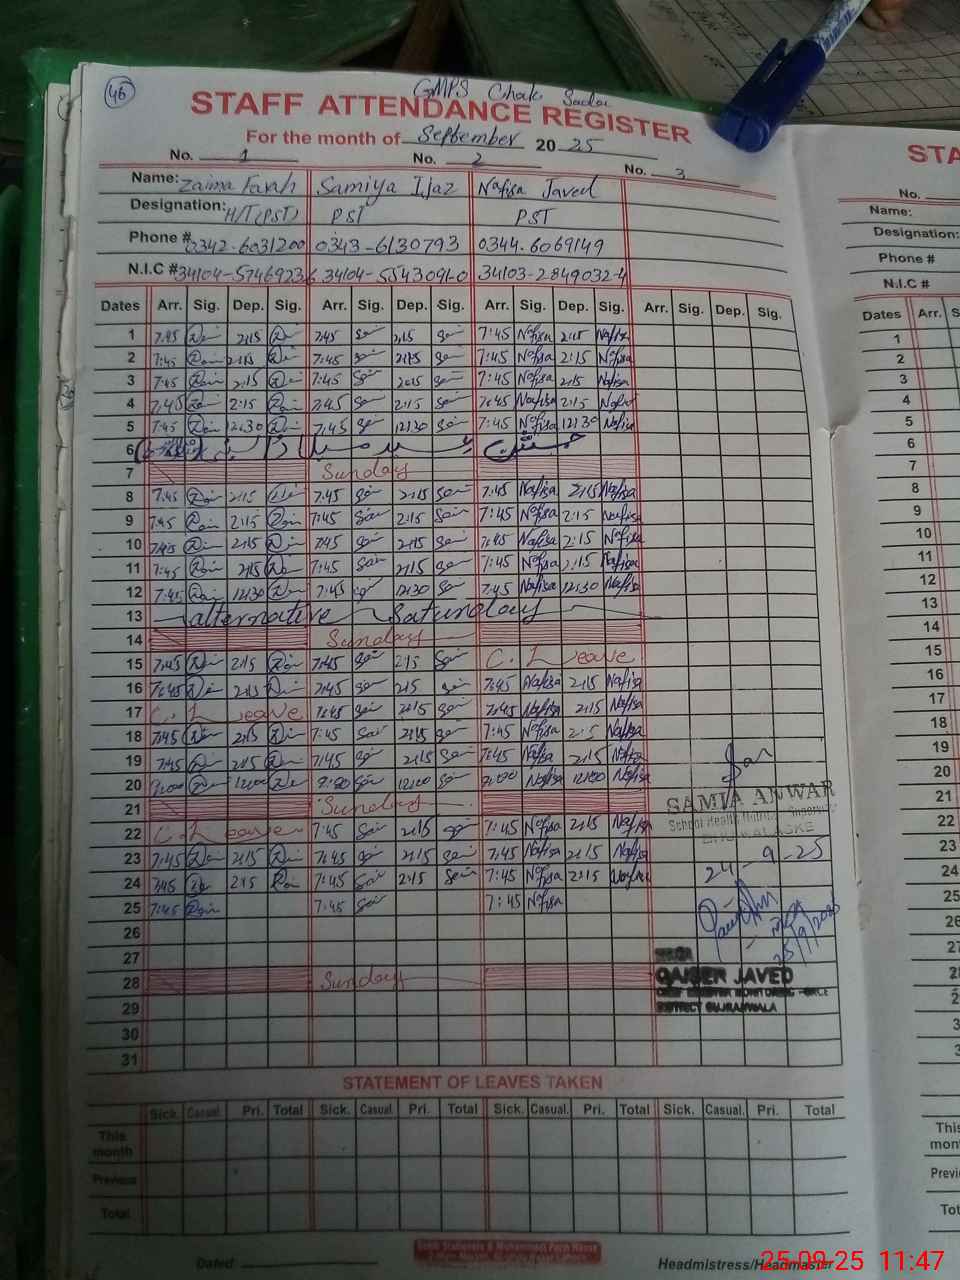 46
GMPS Chak Sada
STAFF ATTENDANCE REGISTER
For the month of September 2025
No. 1 No. 2 No. 3
Name: Zaima Farah Samiya Ijaz Nafisa Javed
Designation: H/T(PST) PST PST
Phone # 0342-6031200 0343-6130793 0344-6069149
N.I.C # 34104-5746923 34104-5543091-0 34103-2849032-4
Dates Arr. Sig. Dep. Sig. Arr. Sig. Dep. Sig. Arr. Sig. Dep. Sig. Arr. Sig. Dep. Sig.
1 7:45 2:15 7:45 2:15 7:45 Nafisa 2:15 Nafisa
2 7:45 2:15 7:45 2:15 7:45 Nafisa 2:15 Nafisa
3 7:45 2:15 7:45 2:15 7:45 Nafisa 2:15 Nafisa
4 7:45 2:15 7:45 2:15 7:45 Nafisa 2:15 Nafisa
5 7:45 12:30 7:45 12:30 7:45 Nafisa 12:30 Nafisa
6
7 Sunday
8 7:45 2:15 7:45 2:15 7:45 Nafisa 2:15 Nafisa
9 7:45 2:15 7:45 2:15 7:45 Nafisa 2:15 Nafisa
10 7:45 2:15 7:45 2:15 7:45 Nafisa 2:15 Nafisa
11 7:45 2:15 7:45 2:15 7:45 Nafisa 2:15 Nafisa
12 7:45 12:30 7:45 12:30 7:45 Nafisa 12:30 Nafisa
13 alternative Saturday
14 Sunday
15 7:45 2:15 7:45 2:15 C. Leave
16 7:45 2:15 7:45 2:15 7:45 Nafisa 2:15 Nafisa
17 C. Leave 7:45 2:15 7:45 Nafisa 2:15 Nafisa
18 7:45 2:15 7:45 2:15 7:45 Nafisa 2:15 Nafisa
19 7:45 2:15 7:45 2:15 7:45 Nafisa 2:15 Nafisa
20 9:00 12:00 9:00 12:00 9:00 Nafisa 12:00 Nafisa
21 Sunday
22 C. Leave 7:45 2:15 7:45 Nafisa 2:15 Nafisa
23 7:45 2:15 7:45 2:15 7:45 Nafisa 2:15 Nafisa
24 7:45 2:15 7:45 2:15 7:45 Nafisa 2:15 Nafisa
25 7:45 7:45 7:45 Nafisa
26
27
28 Sunday
29
30
31
SAMIA ANWAR
School Health Nutrition Supervisor
24-9-25
25/9/2025
QAISER JAVED
DISTRICT GUJRANWALA
STATEMENT OF LEAVES TAKEN
Sick. Casual. Pri. Total Sick. Casual. Pri. Total Sick. Casual. Pri. Total Sick. Casual. Pri. Total
This month
Previous
Total
Dated Headmistress/Headmaster
STA
No.
Name:
Designation:
Phone #
N.I.C #
Dates Arr. S
1
2
3
4
5
6
7
8
9
10
11
12
13
14
15
16
17
18
19
20
21
22
23
24
25
26
27
28
2
3
3
This mon
Previ
Tot
25-09-25 11:47